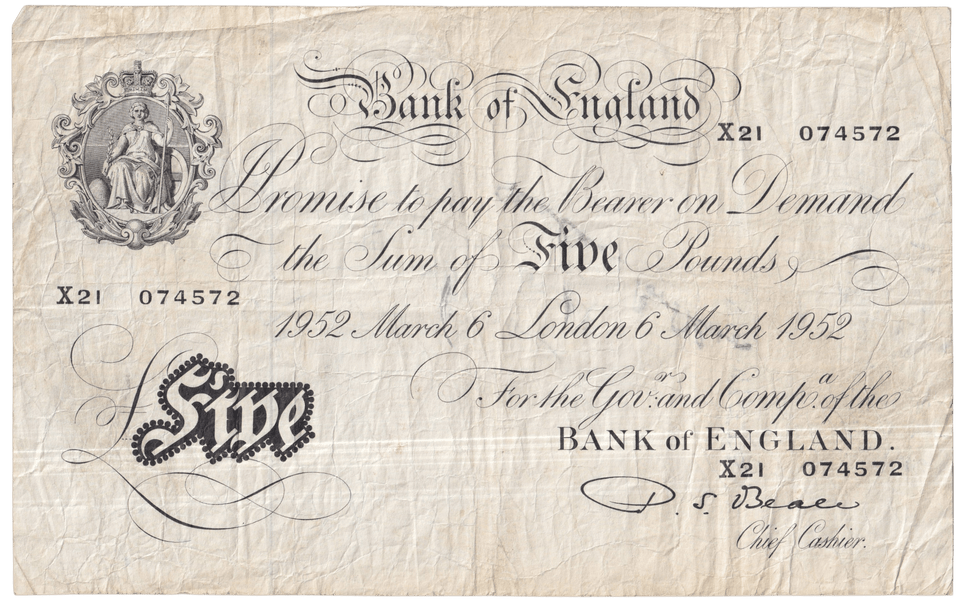 Bank of England
X21 074572
I Promise to pay the Bearer on Demand
the Sum of Five Pounds
X21 074572
1952 March 6 London 6 March 1952
For the Govr. and Compa. of the
BANK of ENGLAND.
£Five
X21 074572
P. S. Beale
Chief Cashier.